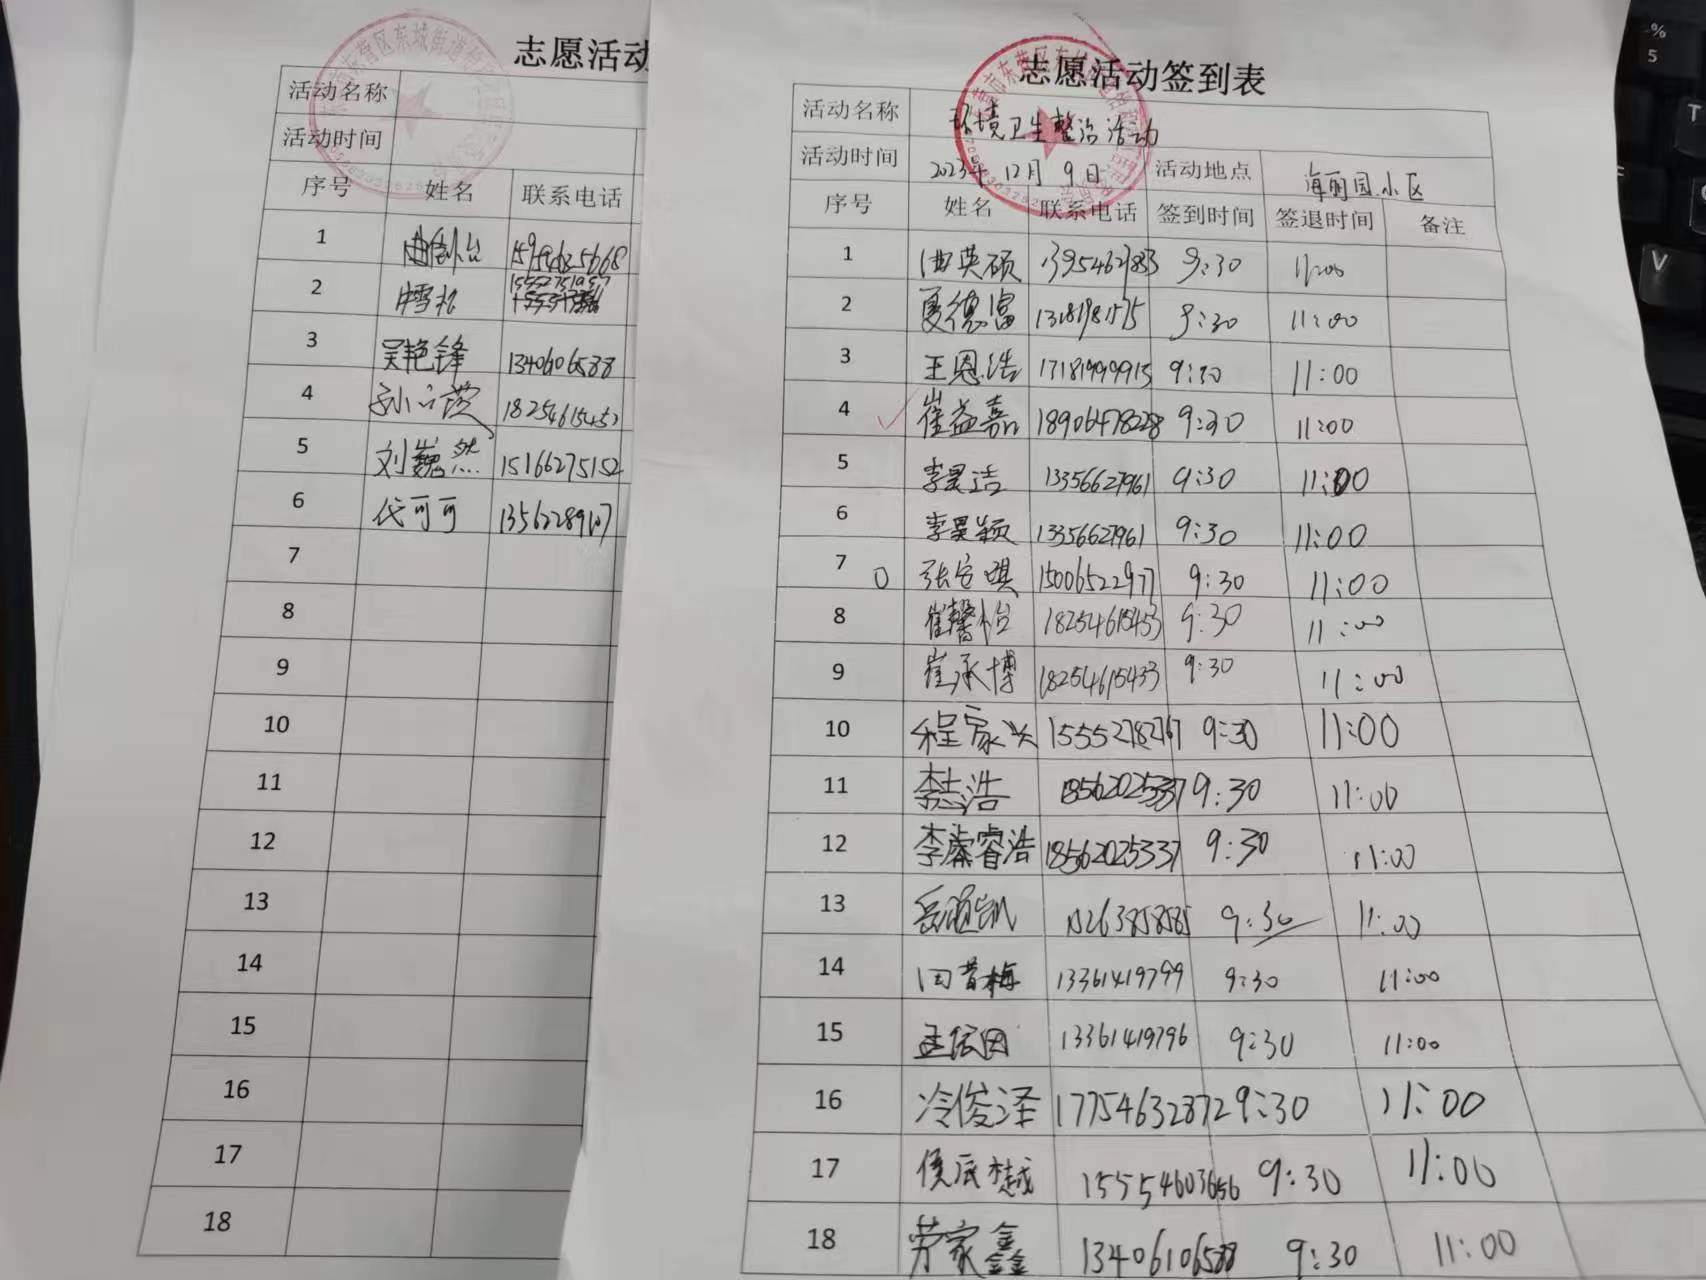 志愿活动
活动名称
活动时间
序号 姓名 联系电话
1
2 15552751957
3 吴艳锋 1340606588
4 18254615453
5 刘巍然 15166275152
6 代可可 13562289107
7
8
9
10
11
12
13
14
15
16
17
18
志愿活动签到表
活动名称 环境卫生整治活动
活动时间 2023年12月9日 活动地点 海丽园小区
序号 姓名 联系电话 签到时间 签退时间 备注
1 曲英硕 9:30 11:00
2 夏德富 9:30 11:00
3 王恩浩 17181999915 9:30 11:00
4 崔益嘉 18906478228 9:30 11:00
5 李昊洁 13356627961 9:30 11:00
6 李昊颖 13356627961 9:30 11:00
7 0 15006522977 9:30 11:00
8 崔馨怡 18254615453 9:30 11:00
9 崔承博 18254615433 9:30 11:00
10 程家兴 15552782767 9:30 11:00
11 李志浩 18562025337 9:30 11:00
12 李睿浩 18562025337 9:30 11:00
13 9:30 11:00
14 田苗梅 13361419799 9:30 11:00
15 13361419796 9:30 11:00
16 冷俊泽 17754632872 9:30 11:00
17 15554603656 9:30 11:00
18 劳家鑫 13406106588 9:30 11:00
% 5
T
V